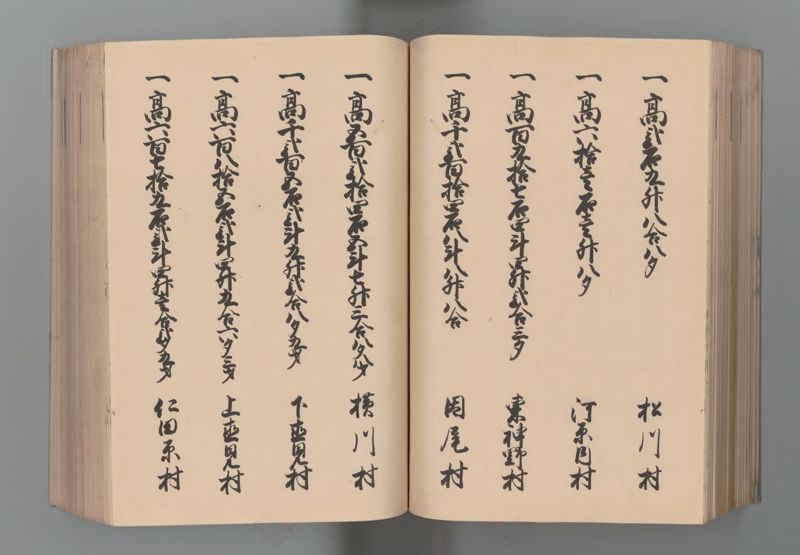 一 高弐石九升八合八夕 松川村
一 高六拾壱石壱升八夕 河原月村
一 高百九拾七石四斗四升弐合三夕 東神野村
一 高千弐百拾四石八斗八升八合 岡尾村
一 高五百弐拾四石五斗七升二合八夕八才 横川村
一 高千弐百五石弐斗九升弐合八夕九才 下直見村
一 高六百八拾五石弐斗四升九合六夕三才 上直見村
一 高六百七拾九石弐斗四升壱合弐夕九才 仁田原村